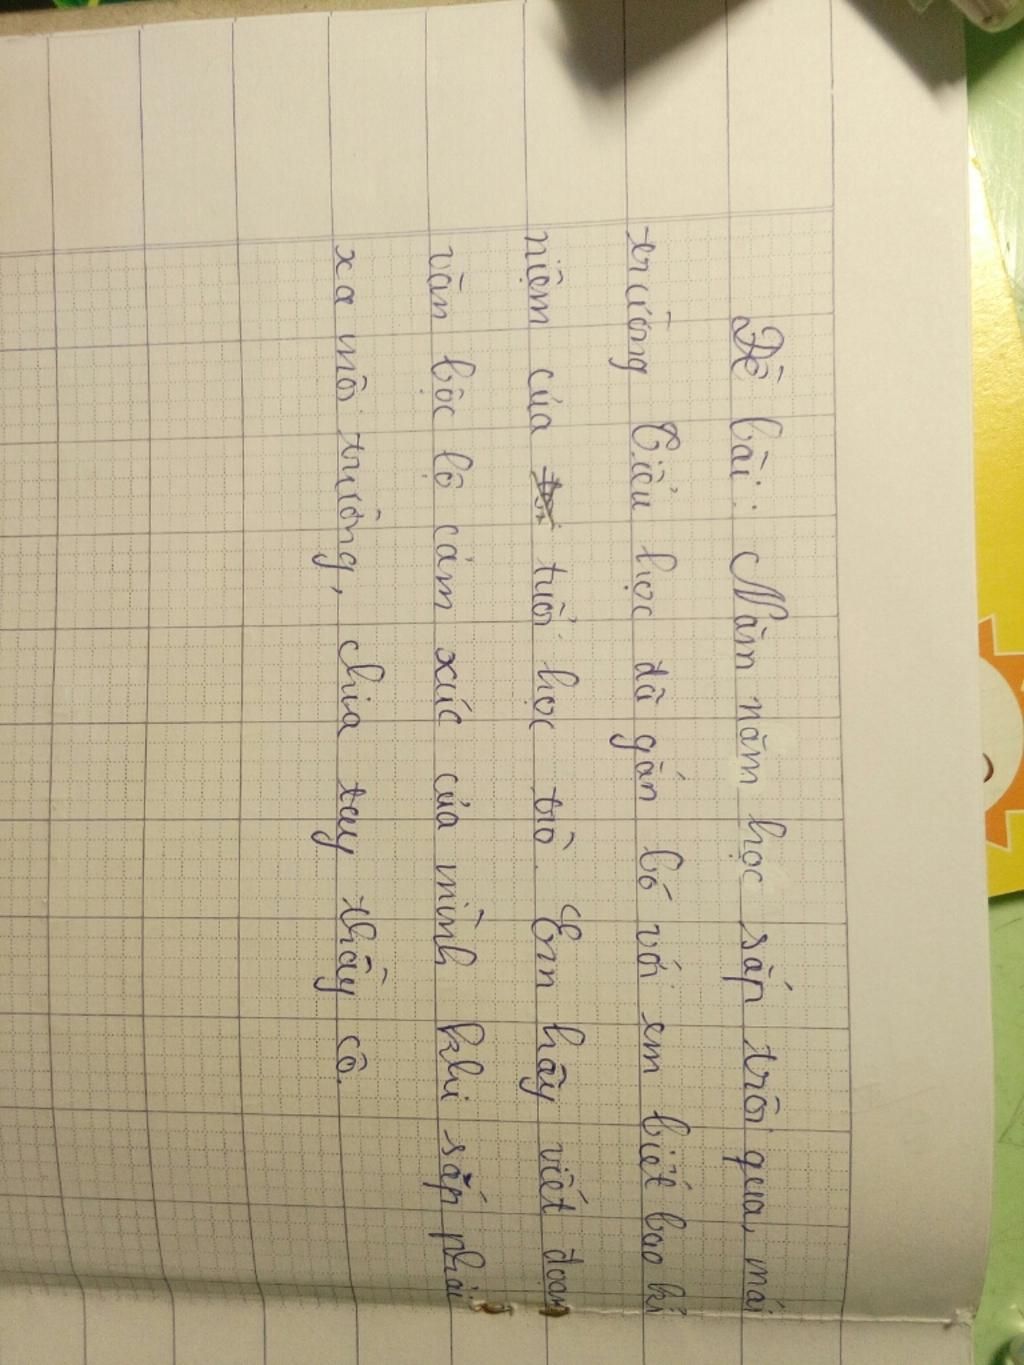 Đề bài: Năm năm học sắp trôi qua, mái
trường Tiểu học đã gắn bó với em biết bao kỉ
niệm của tuổi học trò. Em hãy viết đoạn
văn bộc lộ cảm xúc của mình khi sắp phải
xa mái trường, chia tay thầy cô.